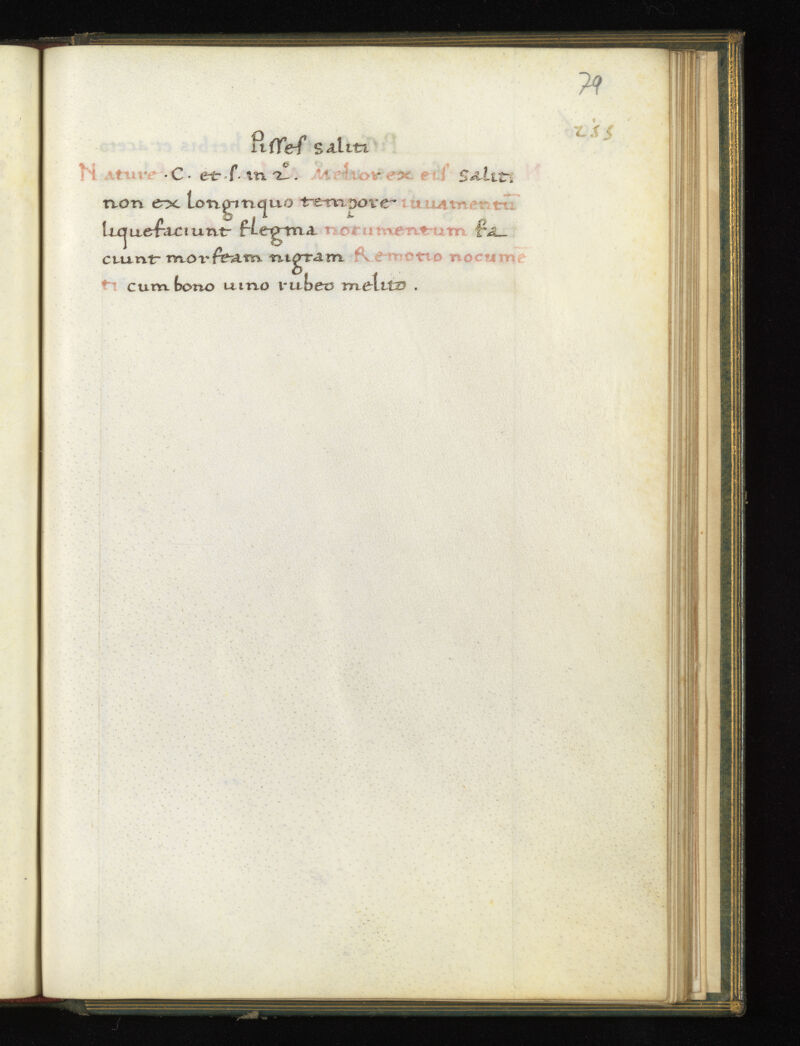 79
255
Pisses saliti
Nature · C · et · s · in 2° . Melior ex eis saliti
non ex longinquo tempore iuuamentū
liquefaciunt flegma nocumentum fa_
ciunt morfeam nigram Remotio nocume
ti cum bono uino rubeo melito .